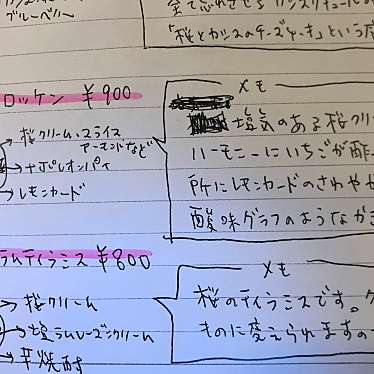 ブルーベリー
「桜とカシスのチーズケーキ」という
ロッケン ¥900
→桜クリーム・スライス
アーモンドなど
→ナポレオンパイ
→レモンカード
メモ
塩気のある桜クリー
ハーモニーにいちごが酢
所にレモンカードのさわや
酸味グラフのような
ラムティラミス ¥800
→桜クリーム
→塩ラムレーズンクリーム
→芋焼酎
メモ
桜のティラミスです。
ものに変えられますの